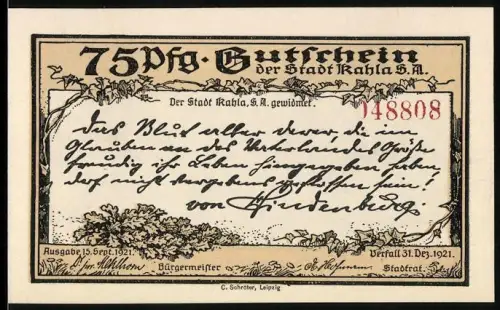 75 Pfg. Gutschein
der Stadt Kahla S.A.
Der Stadt Kahla, S.A. gewidmet.
048808
Das Blut aller derer die im
Glauben an des Vaterlandes Größe
freudig ihr Leben hingegeben haben,
darf nicht vergebens geflossen sein!
von Hindenburg.
Ausgabe 15. Sept. 1921.
Verfall 31. Dez. 1921.
Bürgermeister
Stadtrat.
C. Schröter, Leipzig